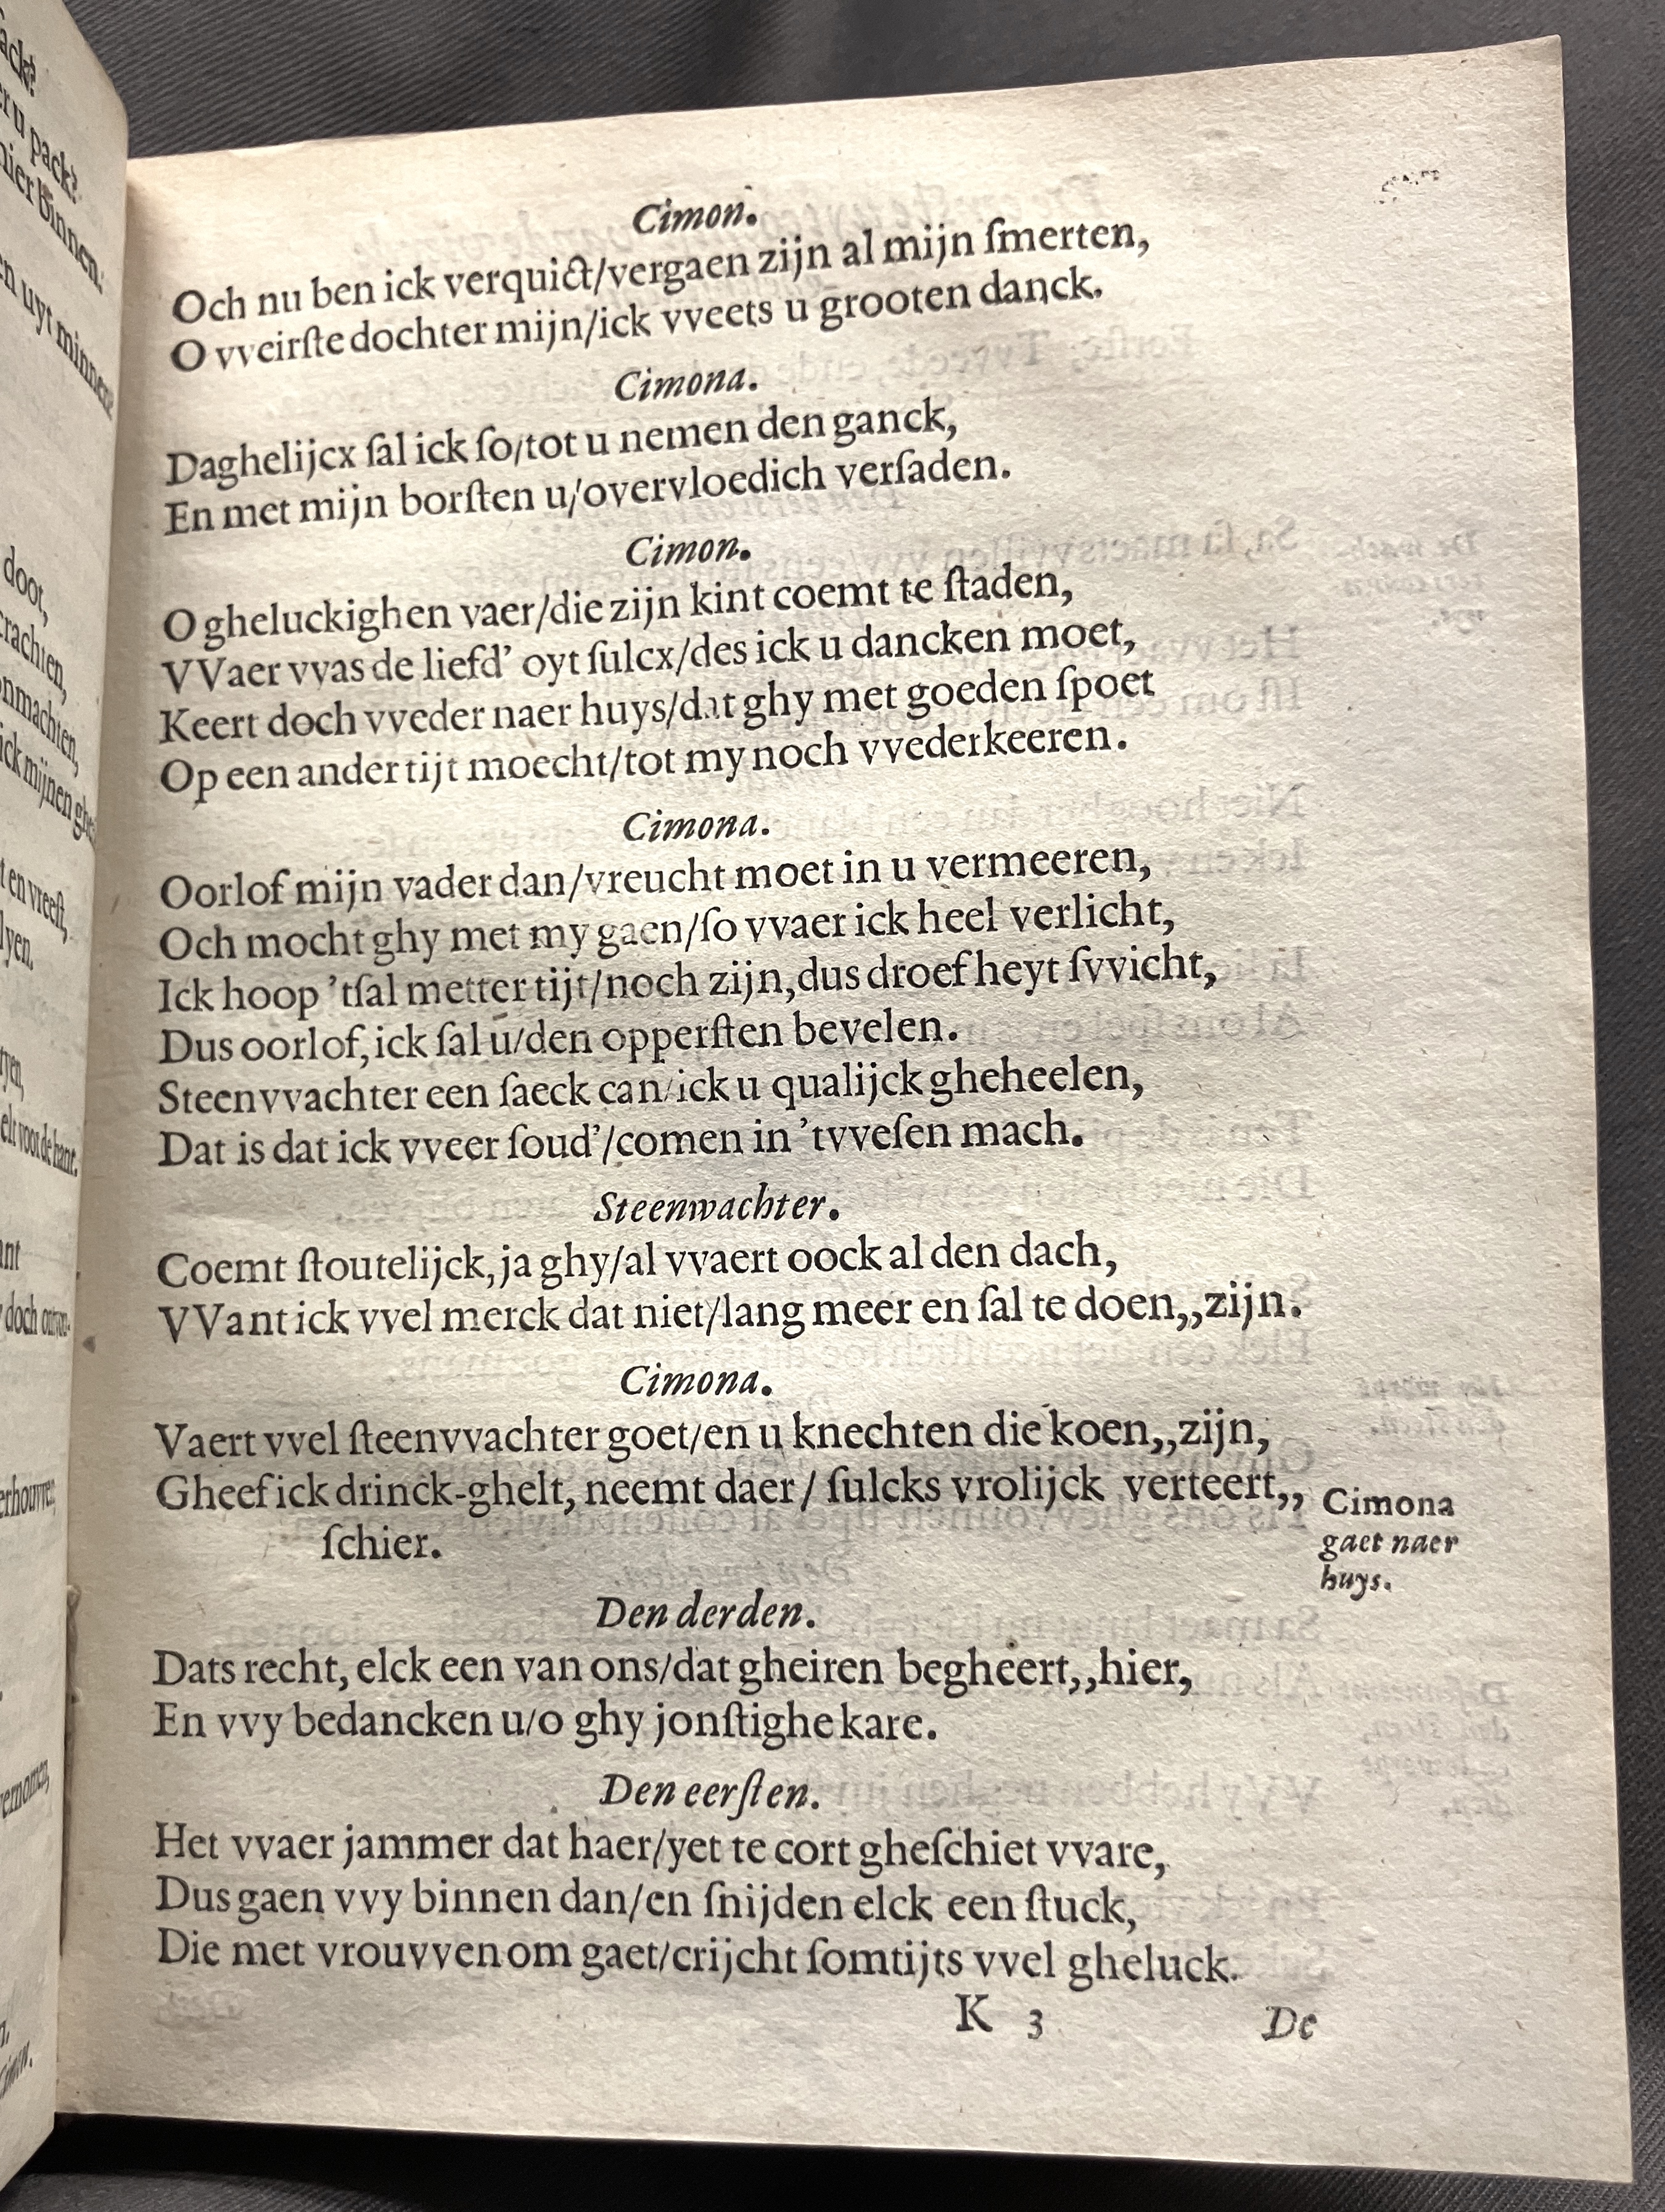 Cimon.
Och nu ben ick verquict/vergaen zijn al mijn ſmerten,
O vveirſte dochter mijn/ick vveets u grooten danck.
Cimona.
Daghelijcx ſal ick ſo/tot u nemen den ganck,
En met mijn borſten u/overvloedich verſaden.
Cimon.
O gheluckighen vaer/die zijn kint coemt te ſtaden,
VVaer vvas de liefd' oyt ſulcx/des ick u dancken moet,
Keert doch vveder naer huys/dat ghy met goeden ſpoet
Op een ander tijt moecht/tot my noch vvederkeeren.
Cimona.
Oorlof mijn vader dan/vreucht moet in u vermeeren,
Och mocht ghy met my gaen/ſo vvaer ick heel verlicht,
Ick hoop 'tſal metter tijt/noch zijn,dus droefheyt ſvvicht,
Dus oorlof,ick ſal u/den opperſten bevelen.
Steenvvachter een ſaeck can/ick u qualijck gheheelen,
Dat is dat ick vveer ſoud'/comen in 'tvveſen mach.
Steenwachter.
Coemt ſtoutelijck,ja ghy/al vvaert oock al den dach,
VVant ick vvel merck dat niet/lang meer en ſal te doen,,zijn.
Cimona.
Vaert vvel ſteenvvachter goet/en u knechten die koen,,zijn,
Gheef ick drinck-ghelt, neemt daer/ ſulcks vrolijck verteert,,
ſchier.
Cimona
gaet naer
huys.
Den derden.
Dats recht, elck een van ons/dat gheiren begheert,,hier,
En vvy bedancken u/o ghy jonſtighe kare.
Den eerſten.
Het vvaer jammer dat haer/yet te cort gheſchiet vvare,
Dus gaen vvy binnen dan/en ſnijden elck een ſtuck,
Die met vrouvven om gaet/crijcht ſomtijts vvel gheluck.
K 3
De